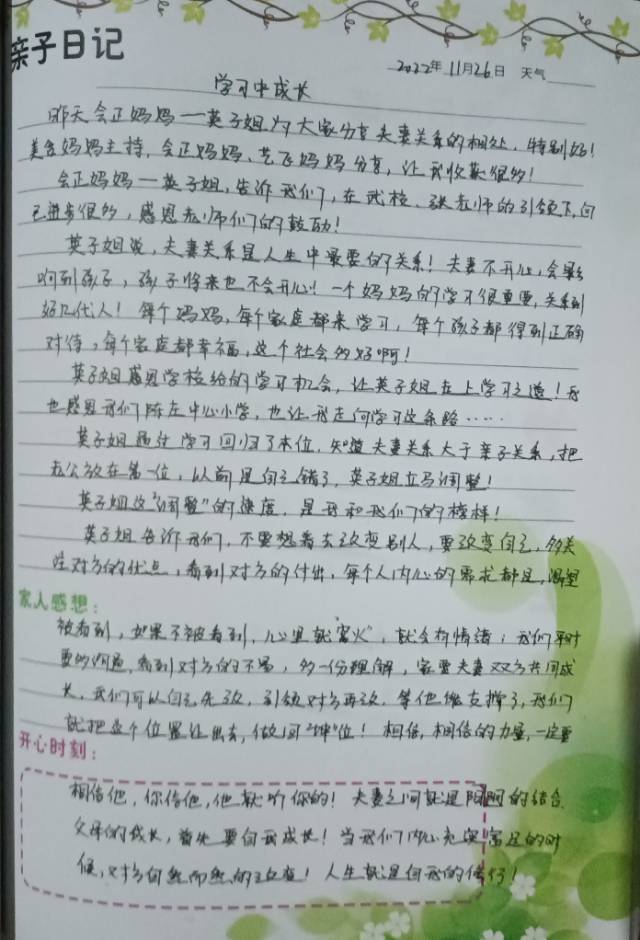 亲子日记
2022年11月26日 天气
学习中成长
昨天会正妈妈一英子姐为大家分享夫妻关系的相处,特别好!
美含妈妈主持,会正妈妈、艺飞妈妈分享,让我收获很多!
会正妈妈一英子姐,告诉我们,在武校、张老师的引领下,自
己进步很多,感恩老师们的鼓励!
英子姐说,夫妻关系是人生中最要的关系!夫妻不开心,会影
响到孩子,孩子将来也不会开心!一个妈妈的学习很重要,关系到
好几代人!每个妈妈,每个家庭都来学习,每个孩子都得到正确
对待,每个家庭都幸福,这个社会多好啊!
英子姐感恩学校给的学习机会,让英子姐走上学习之道!我
也感恩我们陈左中心小学,也让我走向学习这条路……
英子姐通过学习回归了本位,知道夫妻关系大于亲子关系,把
老公放在第一位,以前是自己错了,英子姐立马调整!
英子姐这"调整"的速度,是我和我们的榜样!
英子姐告诉我们,不要想着去改变别人,要改变自己,多关
注对方的优点,看到对方的付出,每个人内心的需求都是,渴望
家人感想:
被看到,如果不被看到,心里就"窝火",就会有情绪;我们平时
要的沟通,看到对方的不易,多一份理解,家要夫妻双方共同成
长,我们可以自己先改,引领对方再改,等他能支撑了,我们
就把这个位置让出去,做回"坤"位!相信,相信的力量,一定要
开心时刻:
相信他,你信他,他就听你的!夫妻之间就是阴阳的结合.
父母的成长,首先要自我成长!当我们内心充实富足的时
候,对方自然而然的改变!人生就是自我的修行!